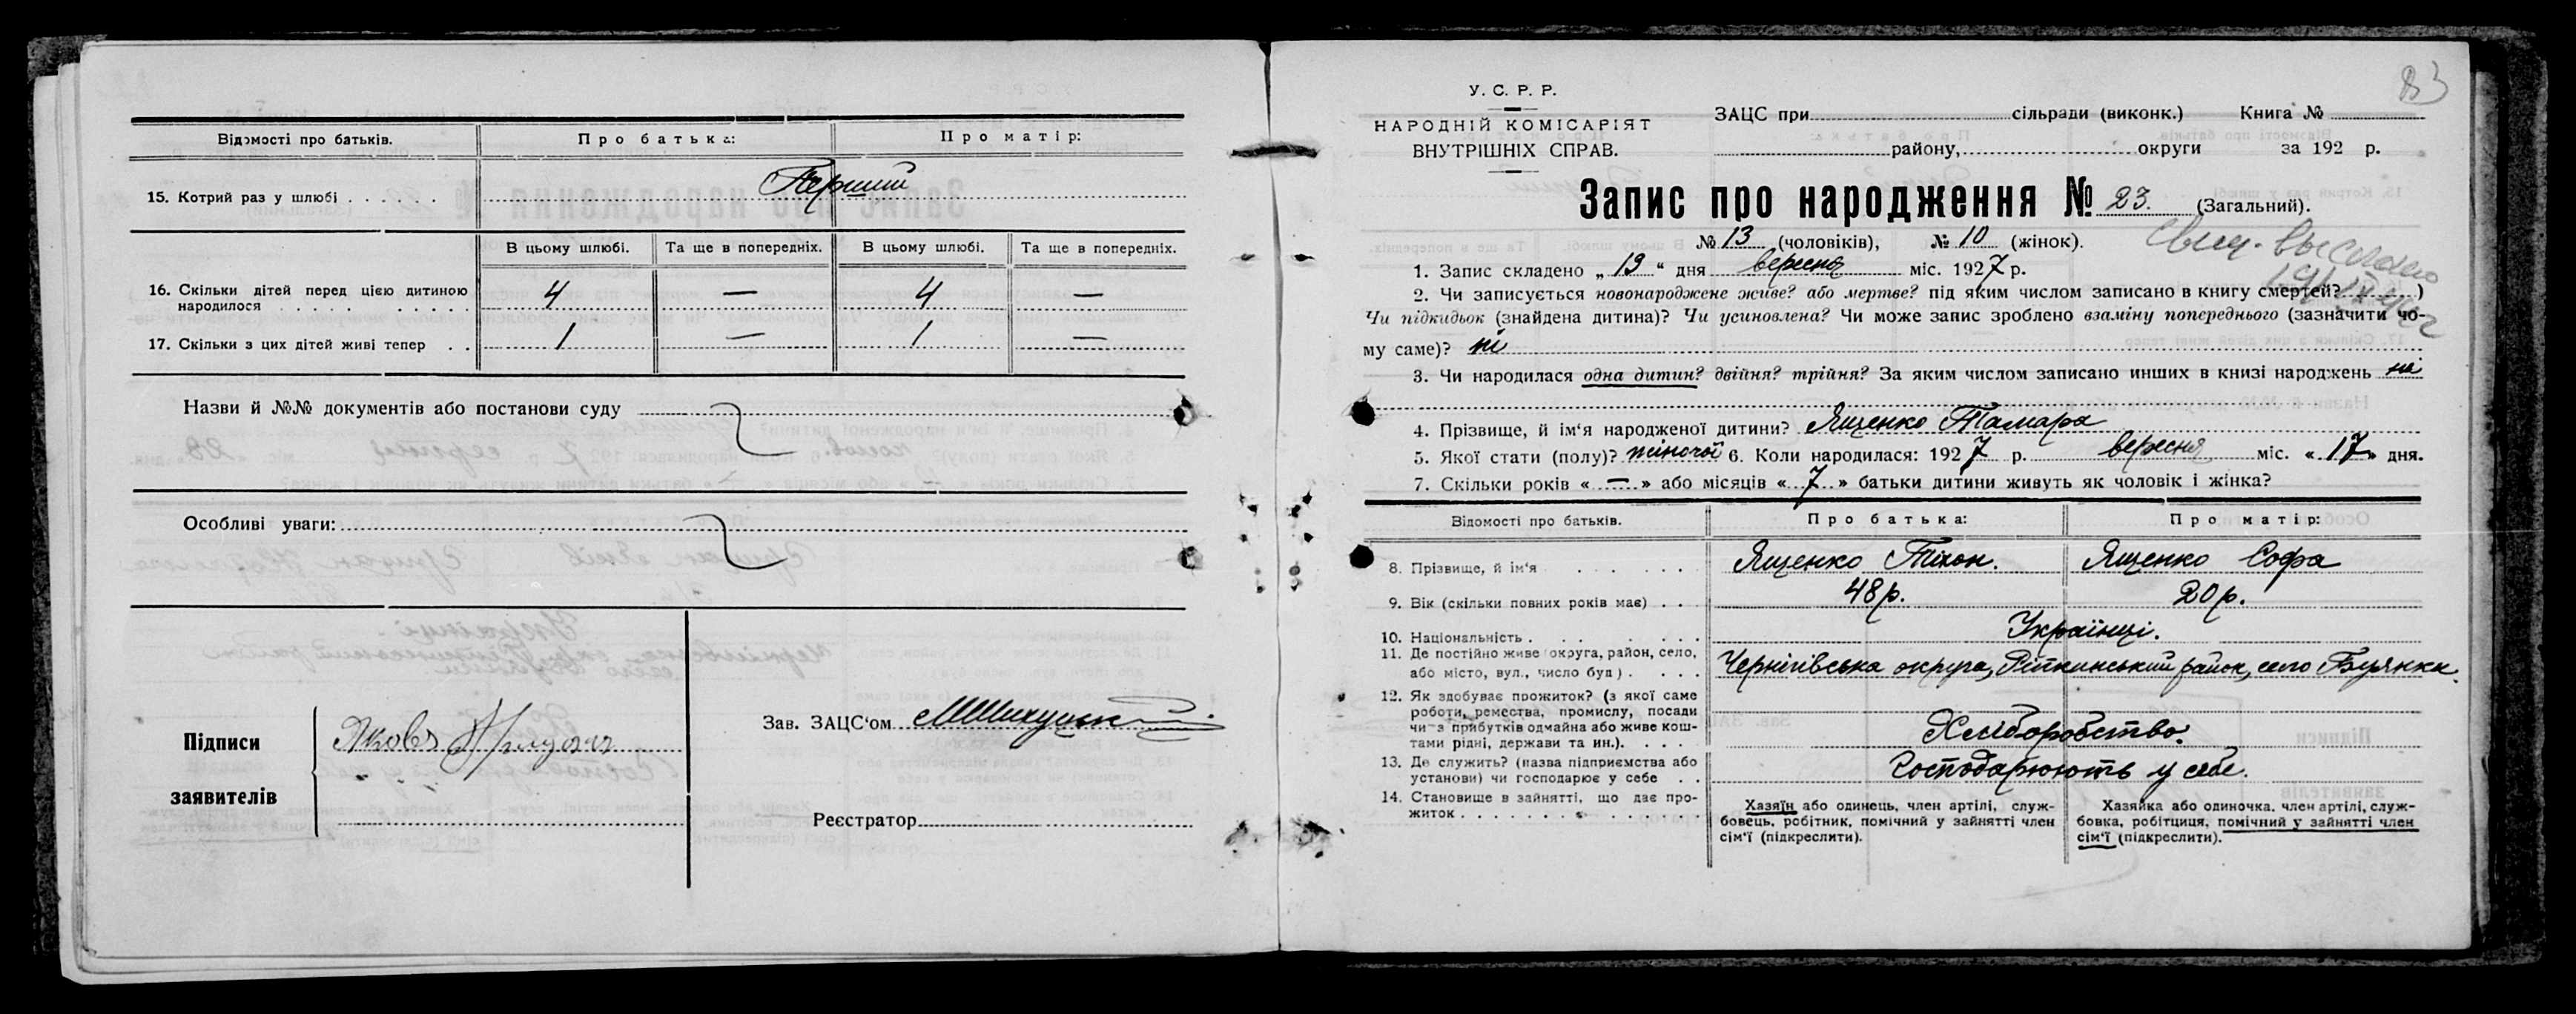 Відомості про батьків. Про батька: Про матір:
15. Котрий раз у шлюбі . . . . . . Перший
В цьому шлюбі. Та ще в попередніх. В цьому шлюбі. Та ще в попередніх.
16. Скільки дітей перед цією дитиною
народилося . . . . . . . . . . 4 — 4 —
17. Скільки з цих дітей живі тепер . . 1 — 1 —
Назви й №№ документів або постанови суду
Особливі уваги:
Підписи
заявителів
Яковъ
Зав. ЗАЦС‘ом
Реєстратор
83
У. С. Р. Р.
НАРОДНІЙ КОМІСАРІЯТ
ВНУТРІШНІХ СПРАВ.
ЗАЦС при сільради (виконк.) Книга №
району, округи за 192 р.
Запис про народження № 23. (Загальний).
№ 13 (чоловіків), № 10 (жінок).
1. Запис складено „ 19 “ дня вересня міс. 1927 р.
2. Чи записується новонароджене живе? або мертве? під яким числом записано в книгу смертей? )
Чи підкидьок (знайдена дитина)? Чи усиновлена? Чи може запис зроблено взаміну попереднього (зазначити чо-
му саме)? ні
3. Чи народилася одна дитин? двійня? трійня? За яким числом записано инших в книзі народжень ні
4. Прізвище, й ім‘я народженої дитини? Ященко Тамара
5. Якої стати (полу)? жіночої 6. Коли народилася: 1927 р. вересня міс. « 17 » дня.
7. Скільки років « — » або місяців « 7 » батьки дитини живуть як чоловік і жінка?
Відомості про батьків. Про батька: Про матір:
8. Прізвище, й ім‘я . . . . . . Ященко Тихон. Ященко Софа
9. Вік (скільки повних років має) . . . 48 р. 20 р.
10. Національність . . . . . . Українці.
11. Де постійно живе (округа, район, село,
або місто, вул., число буд) . . . . Чернігівська округа, Ріпкинський район, село Буянки.
12. Як здобуває прожиток? (з якої саме
роботи, ремества, промислу, посади
чи з прибутків одмайна або живе кош-
тами рідні, держави та ин.). . . . Хліборобство.
13. Де служить? (назва підприємства або
установи) чи господарює у себе . . Господарюють у себе.
14. Становище в зайнятті, що дає про-
житок . . . . . . . . . . . .
Хазяїн або одинець, член артілі, служ-
бовець, робітник, помічний у зайнятті член
сім‘ї (підкреслити).
Хазяйка або одиночка, член артілі, служ-
бовка, робітниця, помічний у зайнятті член
сім‘ї (підкреслити).